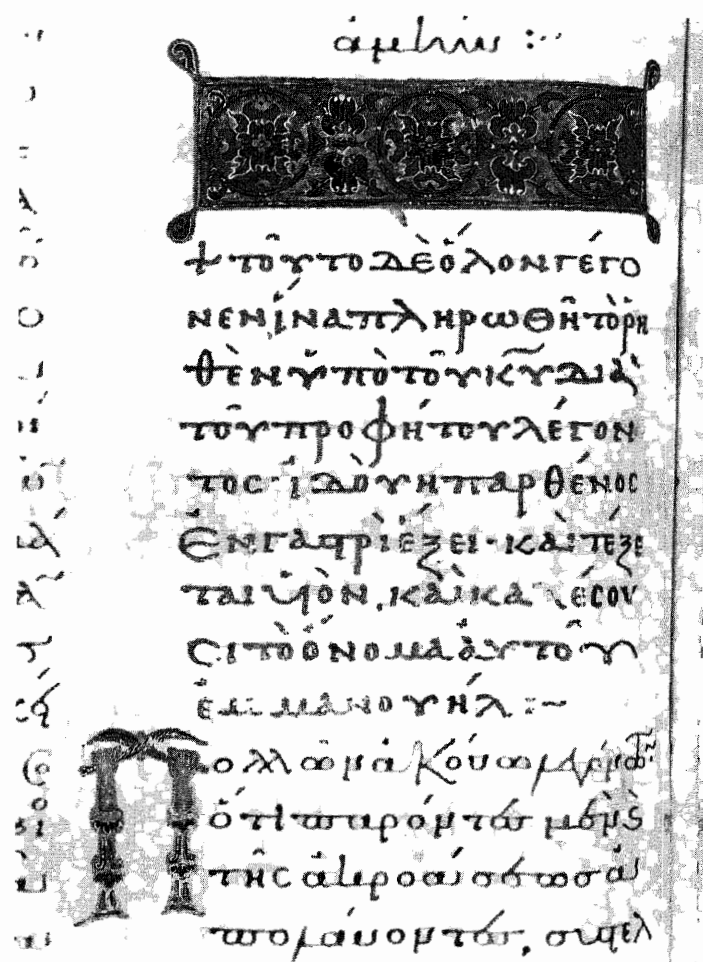 ἀμήν :··
+ τοῦτο δὲ ὅλον γέγο
νεν ἵνα πληρωθῆ τὸ ῥη
θὲν ὑπὸ τοῦ κ͞υ διὰ
τοῦ προφήτου λέγον
τος· ἰδοὺ ἡ παρθένος
ἐν γαστρὶ ἕξει· καὶ τέξε
ται υἱὸν, καὶ καλέσου
σι τὸ ὄνομα αὐτοῦ
ἐμμανουήλ :~
Πολλῶν ἀκούω λεγόντων
ὅτι παρόντες μὲν
τῆς ἀκροάσεως ἀ
πολαύοντες, συστελ